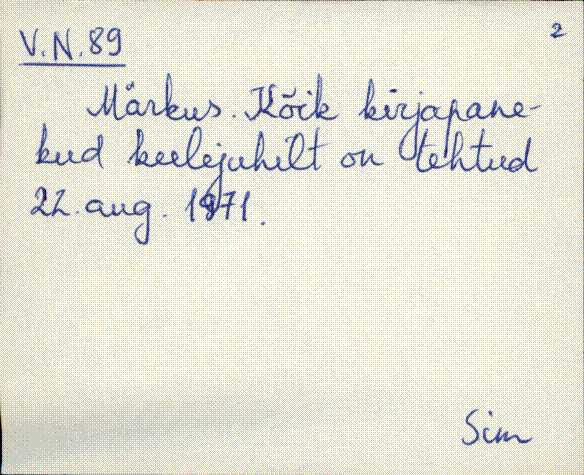 V.N.89
2
Märkus. Kõik kirjapane-
kud keelejuhilt on tehtud
22. aug. 1971.
Sim